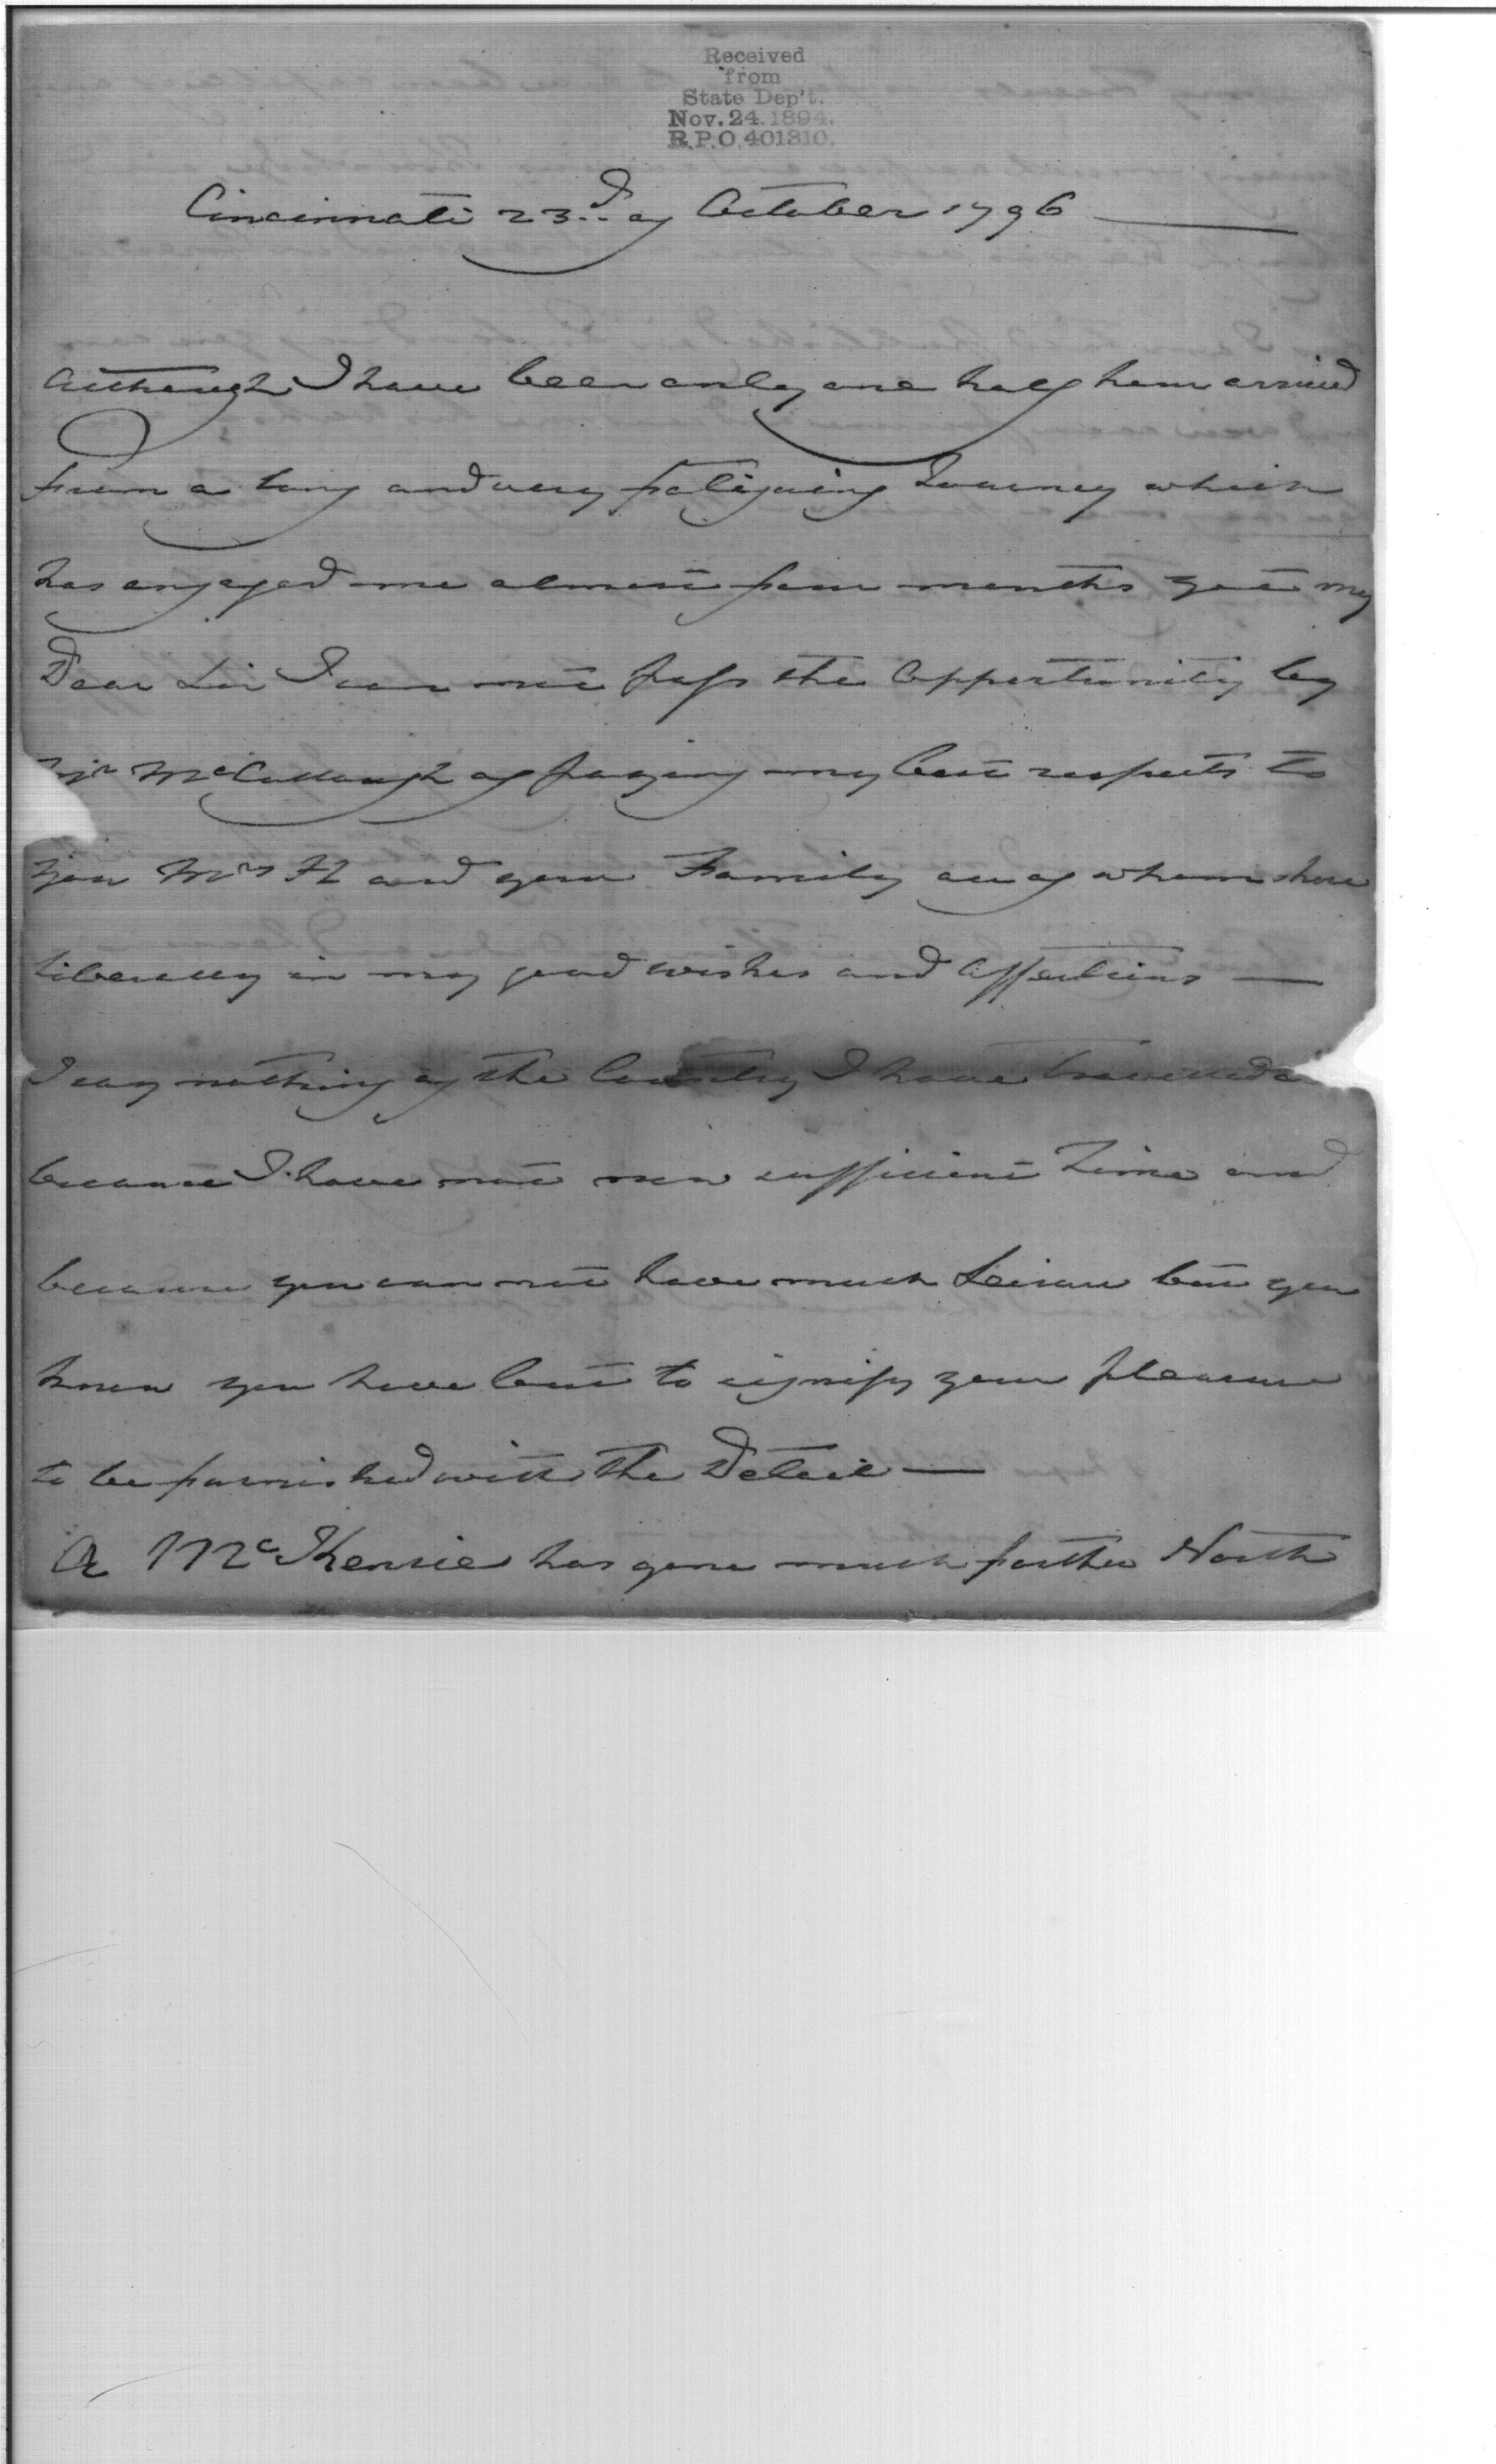 Received
from
State Dep't.
Nov. 24. 1894.
R.P.O. 401310.
Cincinnati 23.d of October 1796
Although I have been only one half hour arrived
from a long and very fatiguing Journey which
has engaged me almost four months yet my
Dear Sir I can not pass the Opportunity by
McCullough of paying my best respects to
you Mrs H and your Family all of whom share
liberally in my good wishes and Affections —
I say nothing of the Country I have travelled
because I have not now sufficient Time and
because you can not have much Leisure but you
know you have but to signify your pleasure
to be furnished with the Detail —
A McKensie has gone much farther North